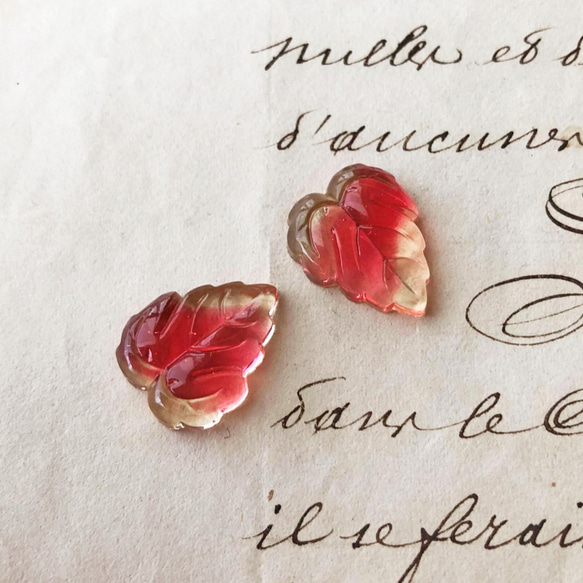 nulles et d
d'aucunes
dans le
il se ferai